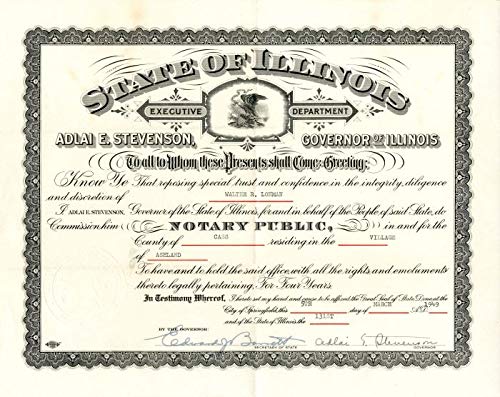 STATE OF ILLINOIS
EXECUTIVE DEPARTMENT
ADLAI E. STEVENSON, GOVERNOR OF ILLINOIS
To all to Whom these Presents shall Come, Greeting:
Know Ye That reposing special trust and confidence in the integrity, diligence
and discretion of WALTER R. LOHMAN
I, ADLAI E. STEVENSON, Governor of the State of Illinois, for and in behalf of the People of said State, do
Commission him NOTARY PUBLIC, in and for the
County of CASS residing in the VILLAGE
of ASHLAND
To have and to hold the said office, with all the rights and emoluments
thereto legally pertaining, For Four Years.
In Testimony Whereof, I hereto set my hand and cause to be affixed the Great Seal of State Done at the
City of Springfield, this 9TH day of MARCH A.D. 1949
and of the State of Illinois, the 131ST
BY THE GOVERNOR:
Edward J Barrett Adlai E. Stevenson
SECRETARY OF STATE GOVERNOR